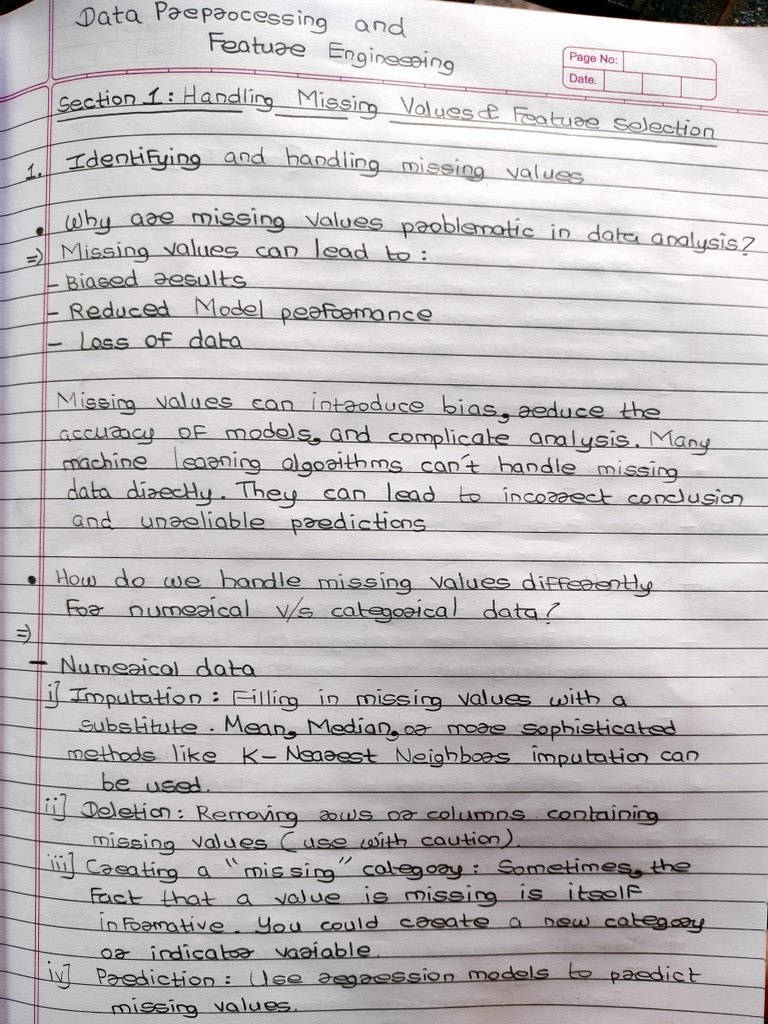 Data Preprocessing and
Feature Engineering
Page No:
Date.
Section 1: Handling Missing Values & Feature selection
1. Identifying and handling missing values
• Why are missing values problematic in data analysis?
⇒ Missing values can lead to :
- Biased results
- Reduced Model performance
- Loss of data
Missing values can introduce bias, reduce the
accuracy of models, and complicate analysis. Many
machine learning algorithms can't handle missing
data directly. They can lead to incorrect conclusion
and unreliable predictions
• How do we handle missing values differently
for numerical v/s categorical data?
⇒
- Numerical data
i] Imputation : Filling in missing values with a
substitute. Mean, Median, or more sophisticated
methods like K-Nearest Neighbors imputation can
be used.
ii] Deletion : Removing rows or columns containing
missing values (use with caution).
iii] Creating a "missing" category : Sometimes, the
fact that a value is missing is itself
informative. You could create a new category
or indicator variable.
iv] Prediction : Use regression models to predict
missing values.